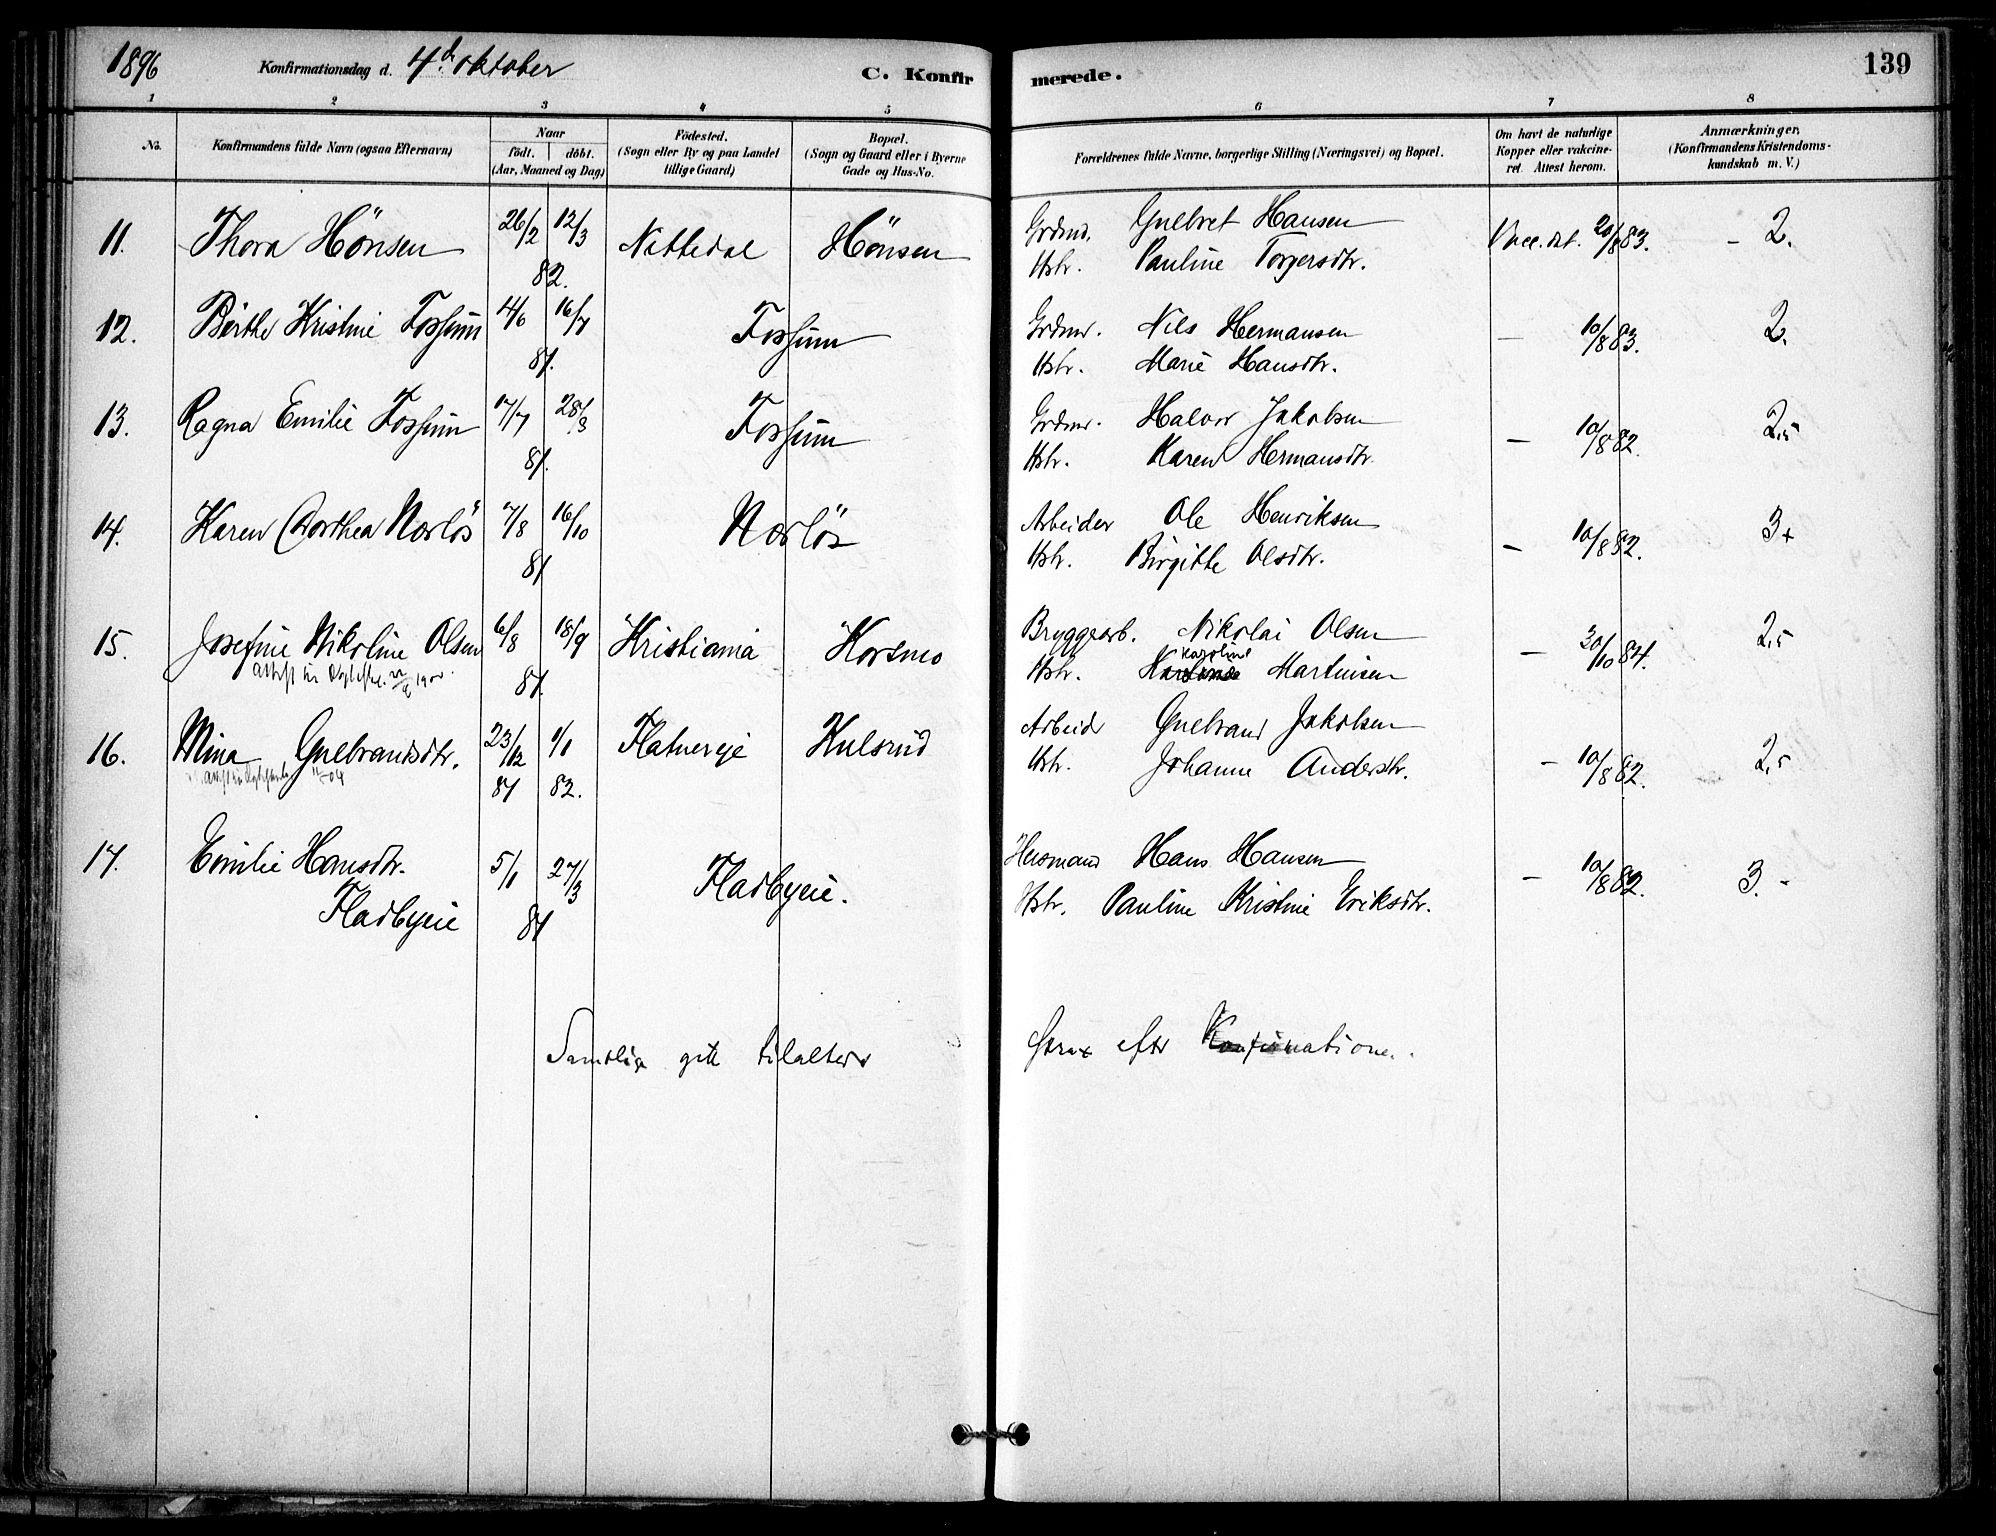 1896 Konfirmationsdag d. 4d. oktober C. Konfirmerede. 139
1 2 3 4 5 6 7 8
No. Konfirmandens fulde Navn (ogsaa Efternavn) Naar født. døbt. (Aar, Maaned og Dag) Födested. (Sogn eller By og paa Landet tillige Gaard) Bopæl. (Sogn og Gaard eller i Byerne Gade og Hus-No. Forældrenes fulde Navne, borgerlige Stilling (Næringsvei) og Bopæl. Om havt de naturlige Kopper eller vakcineret. Attest herom. Anmærkninger, (Konfirmandens Kristendomskundskab m. V.)
11. Thora Hönsen 26/2 12/3 Nittedal Hönsen Grdmd. Gulbret Hansen Vacc. at. 20/8 83. - 2.
82. Hstr. Pauline Torgersdtr.
12. Berthe Kristine Fossum 4/6 16/7 Fossum Grdmr. Nils Hermansen — 10/8 83. 2.
81. Hstr. Marie Hansdtr.
13. Ragna Emilie Fossum 17/7 28/8 Fossum Grdmr. Halvor Jakobsen — 10/8 82. 2,5
81. Hstr. Karen Hermansdtr.
14. Karen Dorthea Norlös 7/8 16/10 Norlös Arbeider Ole Henriksen — 10/8 82. 3+
81 Hstr. Birgitte Olsdtr.
15. Josefine Nikoline Olsen 6/8 18/9 Kristiania Korsmo Bryggearb. Nikolai Olsen — 30/10 84. 2,5
81. Hstr. Karoline Martinsen
16. Mina Gulbrandsdtr. 23/12 1/1 Flatnereje Kulsrud Arbeid Gulbrand Jakobsen - 10/8 82. 2,5
81 82. Hstr. Johanne Anderstr.
17. Emilie Hansdtr. 5/1 27/3 Fladbyeie. Husmand Hans Hansen — 10/8 82. 3. -
Fladbyeie 81 Hstr. Pauline Kristine Eriksdtr.
Samtlige gik tilalters strax efter Konfirmationen.